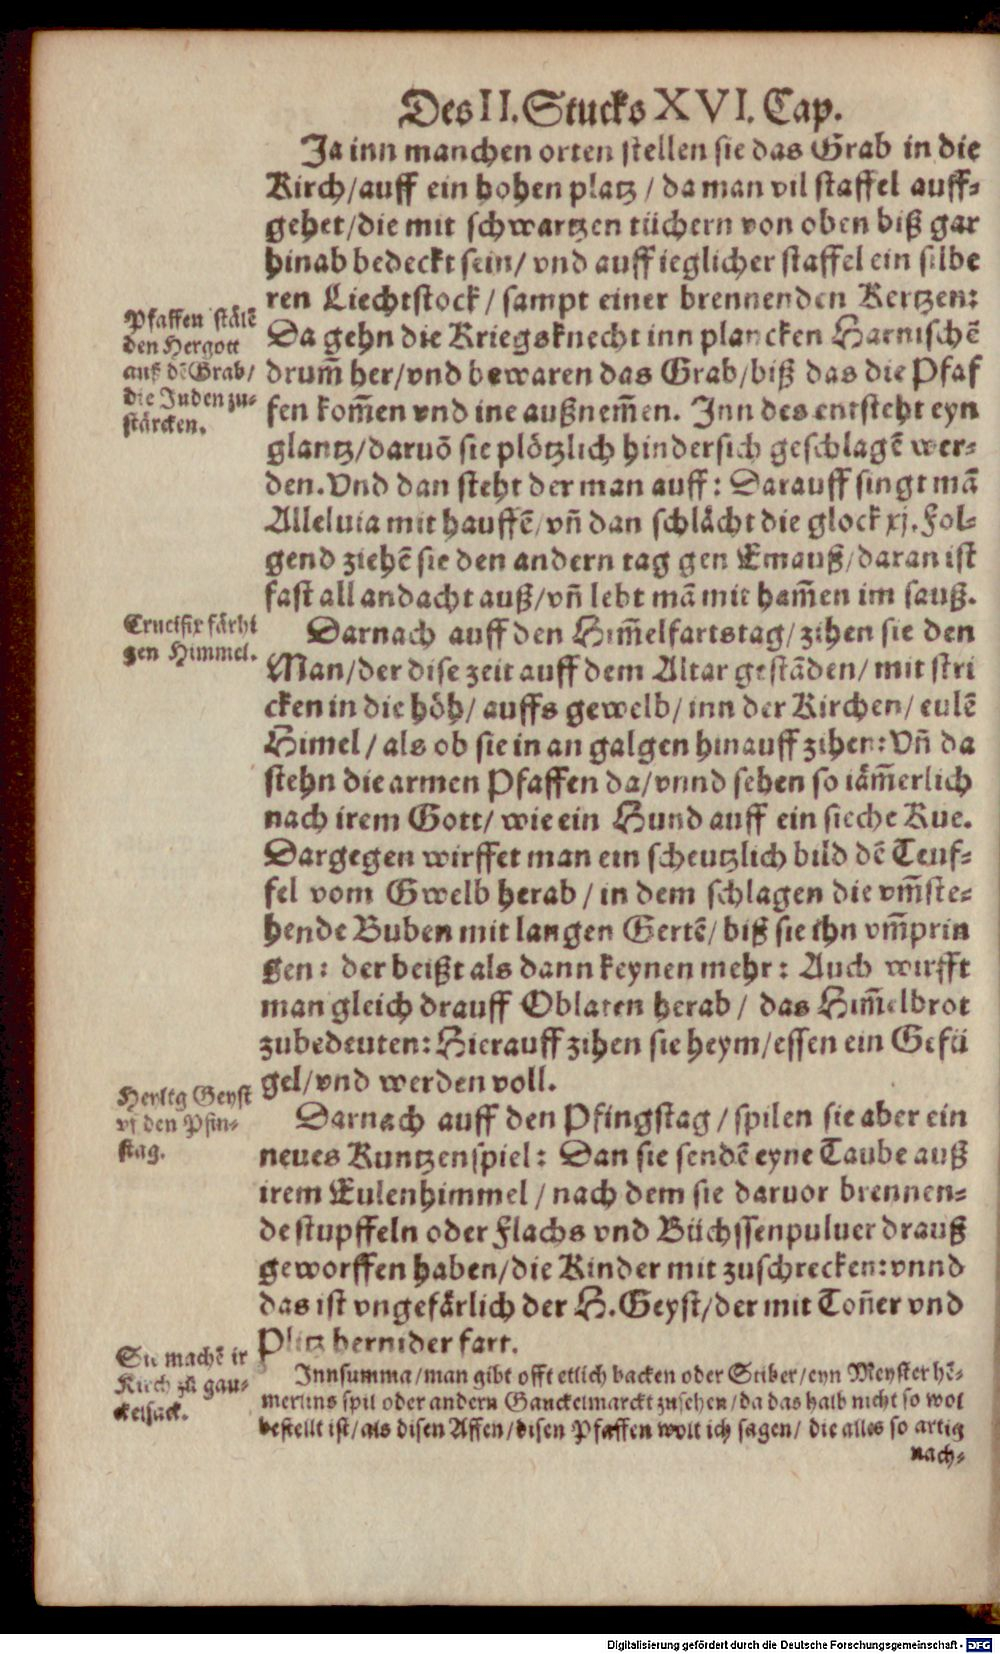 Des II. Stucks XVI. Cap.
Ja inn manchen orten stellen sie das Grab in die
Kirch/auff ein hohen platz / da man vil staffel auff⸗
gehet/die mit schwartzen tüchern von oben biß gar
hinab bedeckt sein/ vnd auff ieglicher staffel ein silbe
ren Liechtstock/ sampt einer brennenden Kertzen:
Pfaffen stålẽ
den Hergott
auß dẽ Grab/
die Juden zu⸗
stårcken.
Da gehn die Kriegsknecht inn plancken Harnischẽ
drum̃ her/vnd bewaren das Grab/biß das die Pfaf
fen kom̃en vnd ine außnem̃en. Inn des entsteht eyn
glantz/daruõ sie plötzlich hindersich geschlagẽ wer⸗
den. Vnd dan steht der man auff: Darauff singt mã
Alleluia mit hauffẽ/vñ dan schlächt die glock xj. Fol⸗
gend ziehẽ sie den andern tag gen Emauß/daran ist
fast all andacht auß/vñ lebt mã mit ham̃en im sauß.
Crucifix fårht
gen Himmel.
Darnach auff den Him̃elfartstag/zihen sie den
Man/der dise zeit auff dem Altar gestãden/ mit stri
cken in die höh/ auffs gewelb/ inn der Kirchen/ eulẽ
Himel / als ob sie in an galgen hinauff zihen: Vñ da
stehn die armen Pfaffen da/vnnd sehen so iåm̃erlich
nach irem Gott/ wie ein Hund auff ein sieche Kue.
Dargegen wirffet man ein scheutzlich bild dẽ Teuf⸗
fel vom Gwelb herab / in dem schlagen die vm̃ste⸗
hende Buben mit langen Gertẽ/ biß sie ihn vm̃prin
gen: der beißt als dann keynen mehr: Auch wirfft
man gleich drauff Oblaten herab / das Him̃elbrot
zubedeuten: Hierauff zihen sie heym/essen ein Gefü
gel/vnd werden voll.
Heylig Geyst
vf den Pfin⸗
stag.
Darnach auff den Pfingstag / spilen sie aber ein
neues Kuntzenspiel: Dan sie sendẽ eyne Taube auß
irem Eulenhimmel / nach dem sie daruor brennen⸗
de stupffeln oder Flachs vnd Büchssenpuluer drauß
geworffen haben/die Kinder mit zuschrecken: vnnd
das ist vngefårlich der H. Geyst/der mit Toñer vnd
Plitz hernider fart.
Sie machẽ ir
Kirch zů gau⸗
ckelsack.
Innsumma/man gibt offt etlich backen oder Stiber/eyn Meyster hẽ⸗
merlins spil oder andern Ganckelmarckt zusehen/da das halb nicht so wol
bestellt ist/als disen Affen/disen Pfaffen wolt ich sagen/ die alles so artig
nach⸗
Digitalisierung gefördert durch die Deutsche Forschungsgemeinschaft - DFG